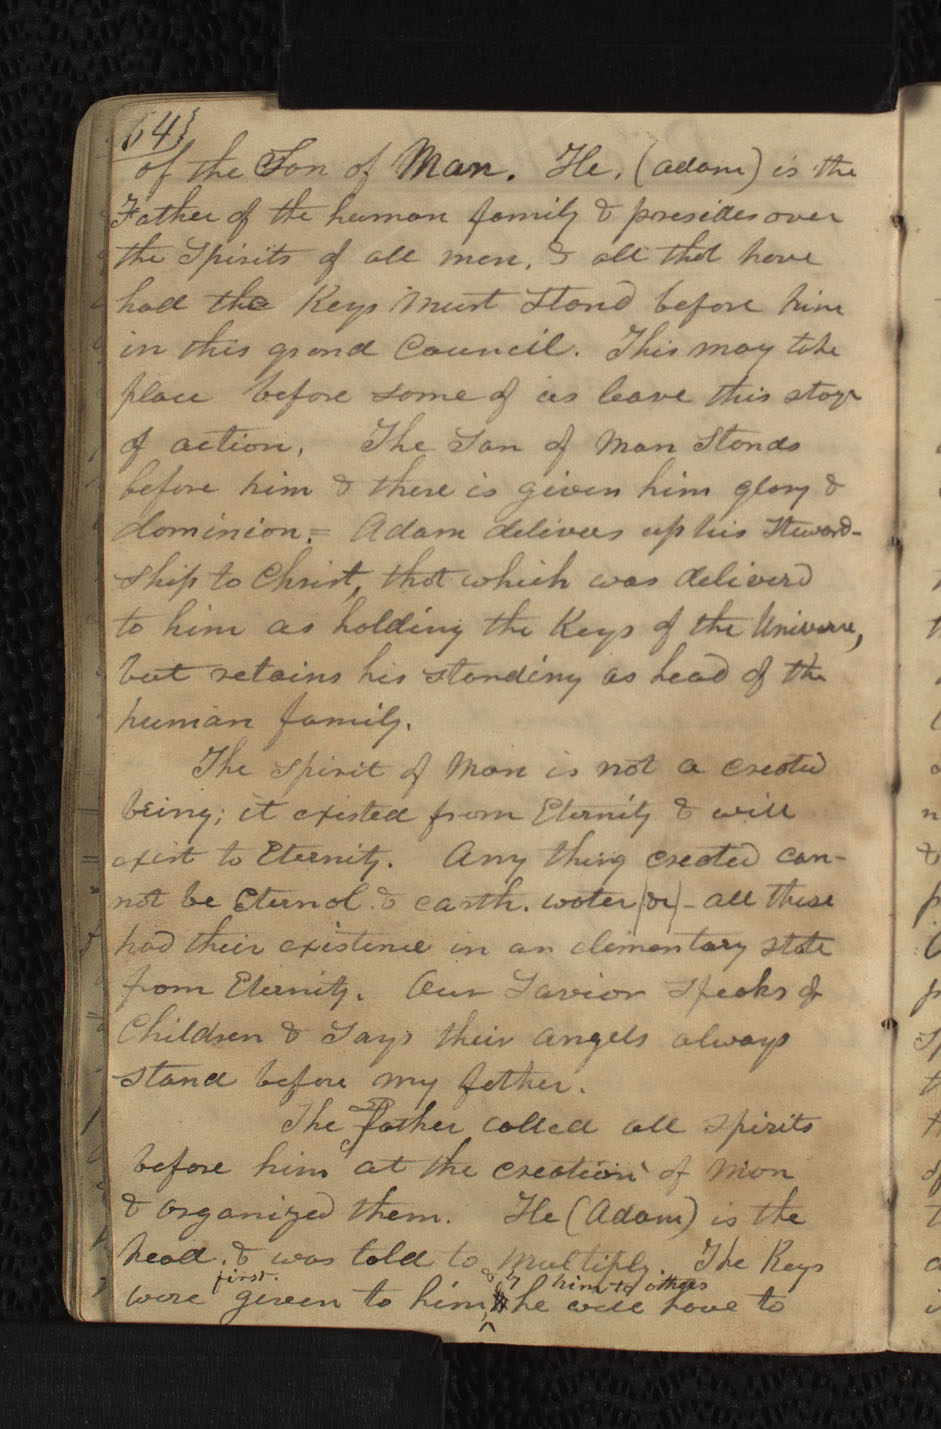 64}
of the Son of Man. He, (adam) is the
Father of the human family & presides over
the Spirits of all men, & all that have
had the Keys must Stand before him
in this grand Council. This may take
place before some of us leave this stage
of action. The Son of Man Stands
before him & there is given him glory &
dominion.= Adam delivers up his Steward-
ship to Christ, that which was deliverd
to him as holding the Keys of the Universe,
but retains his standing as head of the
human family.
The Spirit of Man is not a created
being; it existed from Eternity & will
exist to Eternity. Any thing created can-
not be Eternal. & earth. water (&c) - all these
had their existence in an elementary state
from Eternity. Our Savior Speaks of
Children & Says their angels always
stand before my father.
The Father called all spirits
before him at the creation of Man
& organized them. He (Adam) is the
head. & was told to multiply. The Keys
first. & by him to others
were given to him, he will have to